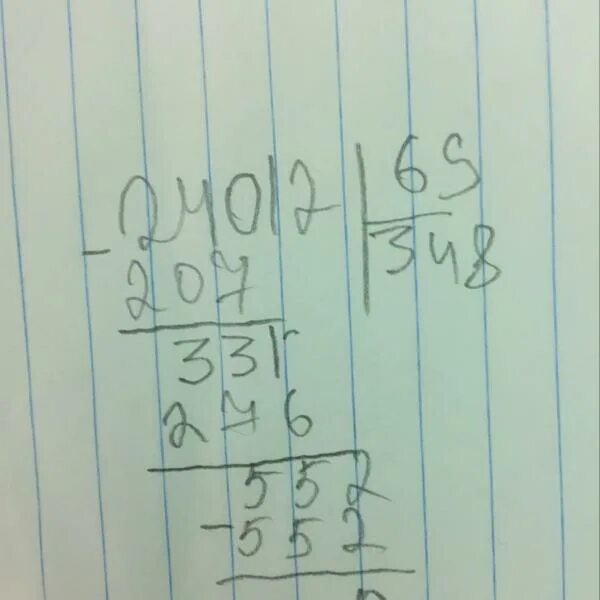 24012 69
- 207 348
331
276
552
- 552
0